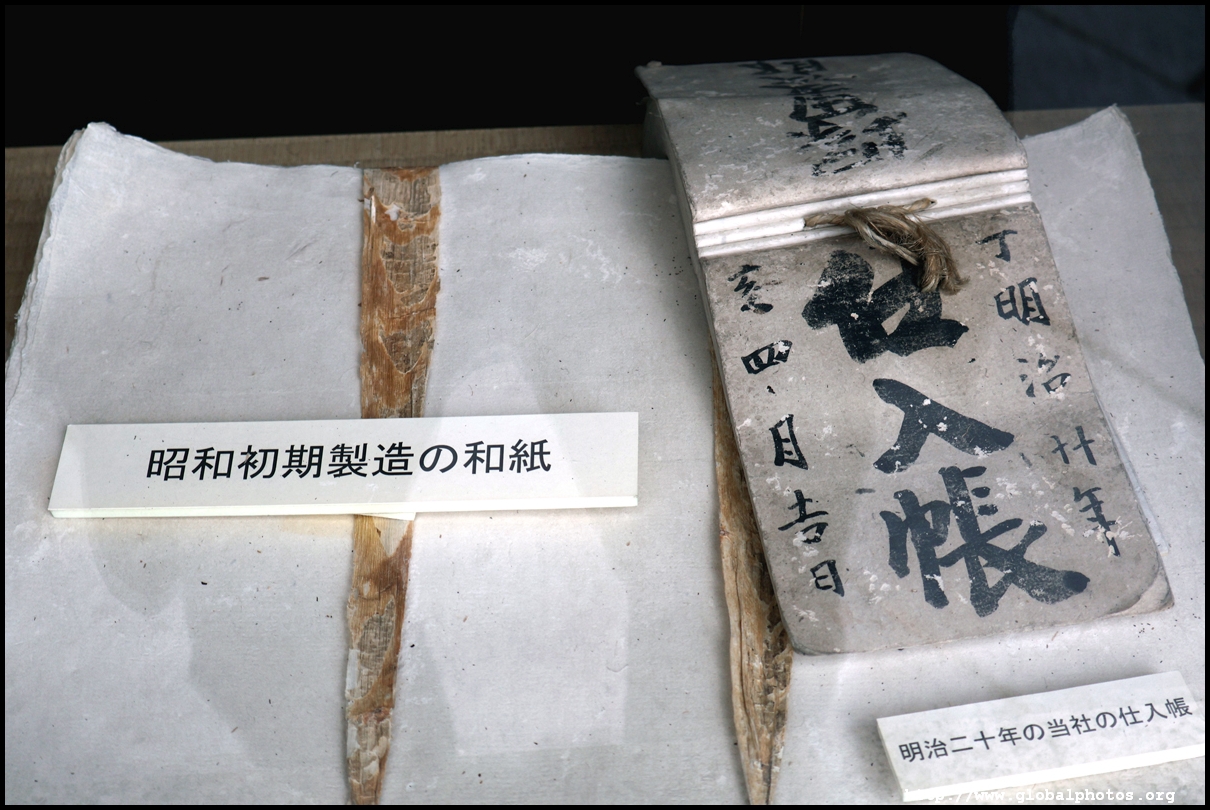 昭和初期製造の和紙
丁明治廿年
仕入帳
亥四月吉日
明治二十年の当社の仕入帳
http://www.globalphotos.org